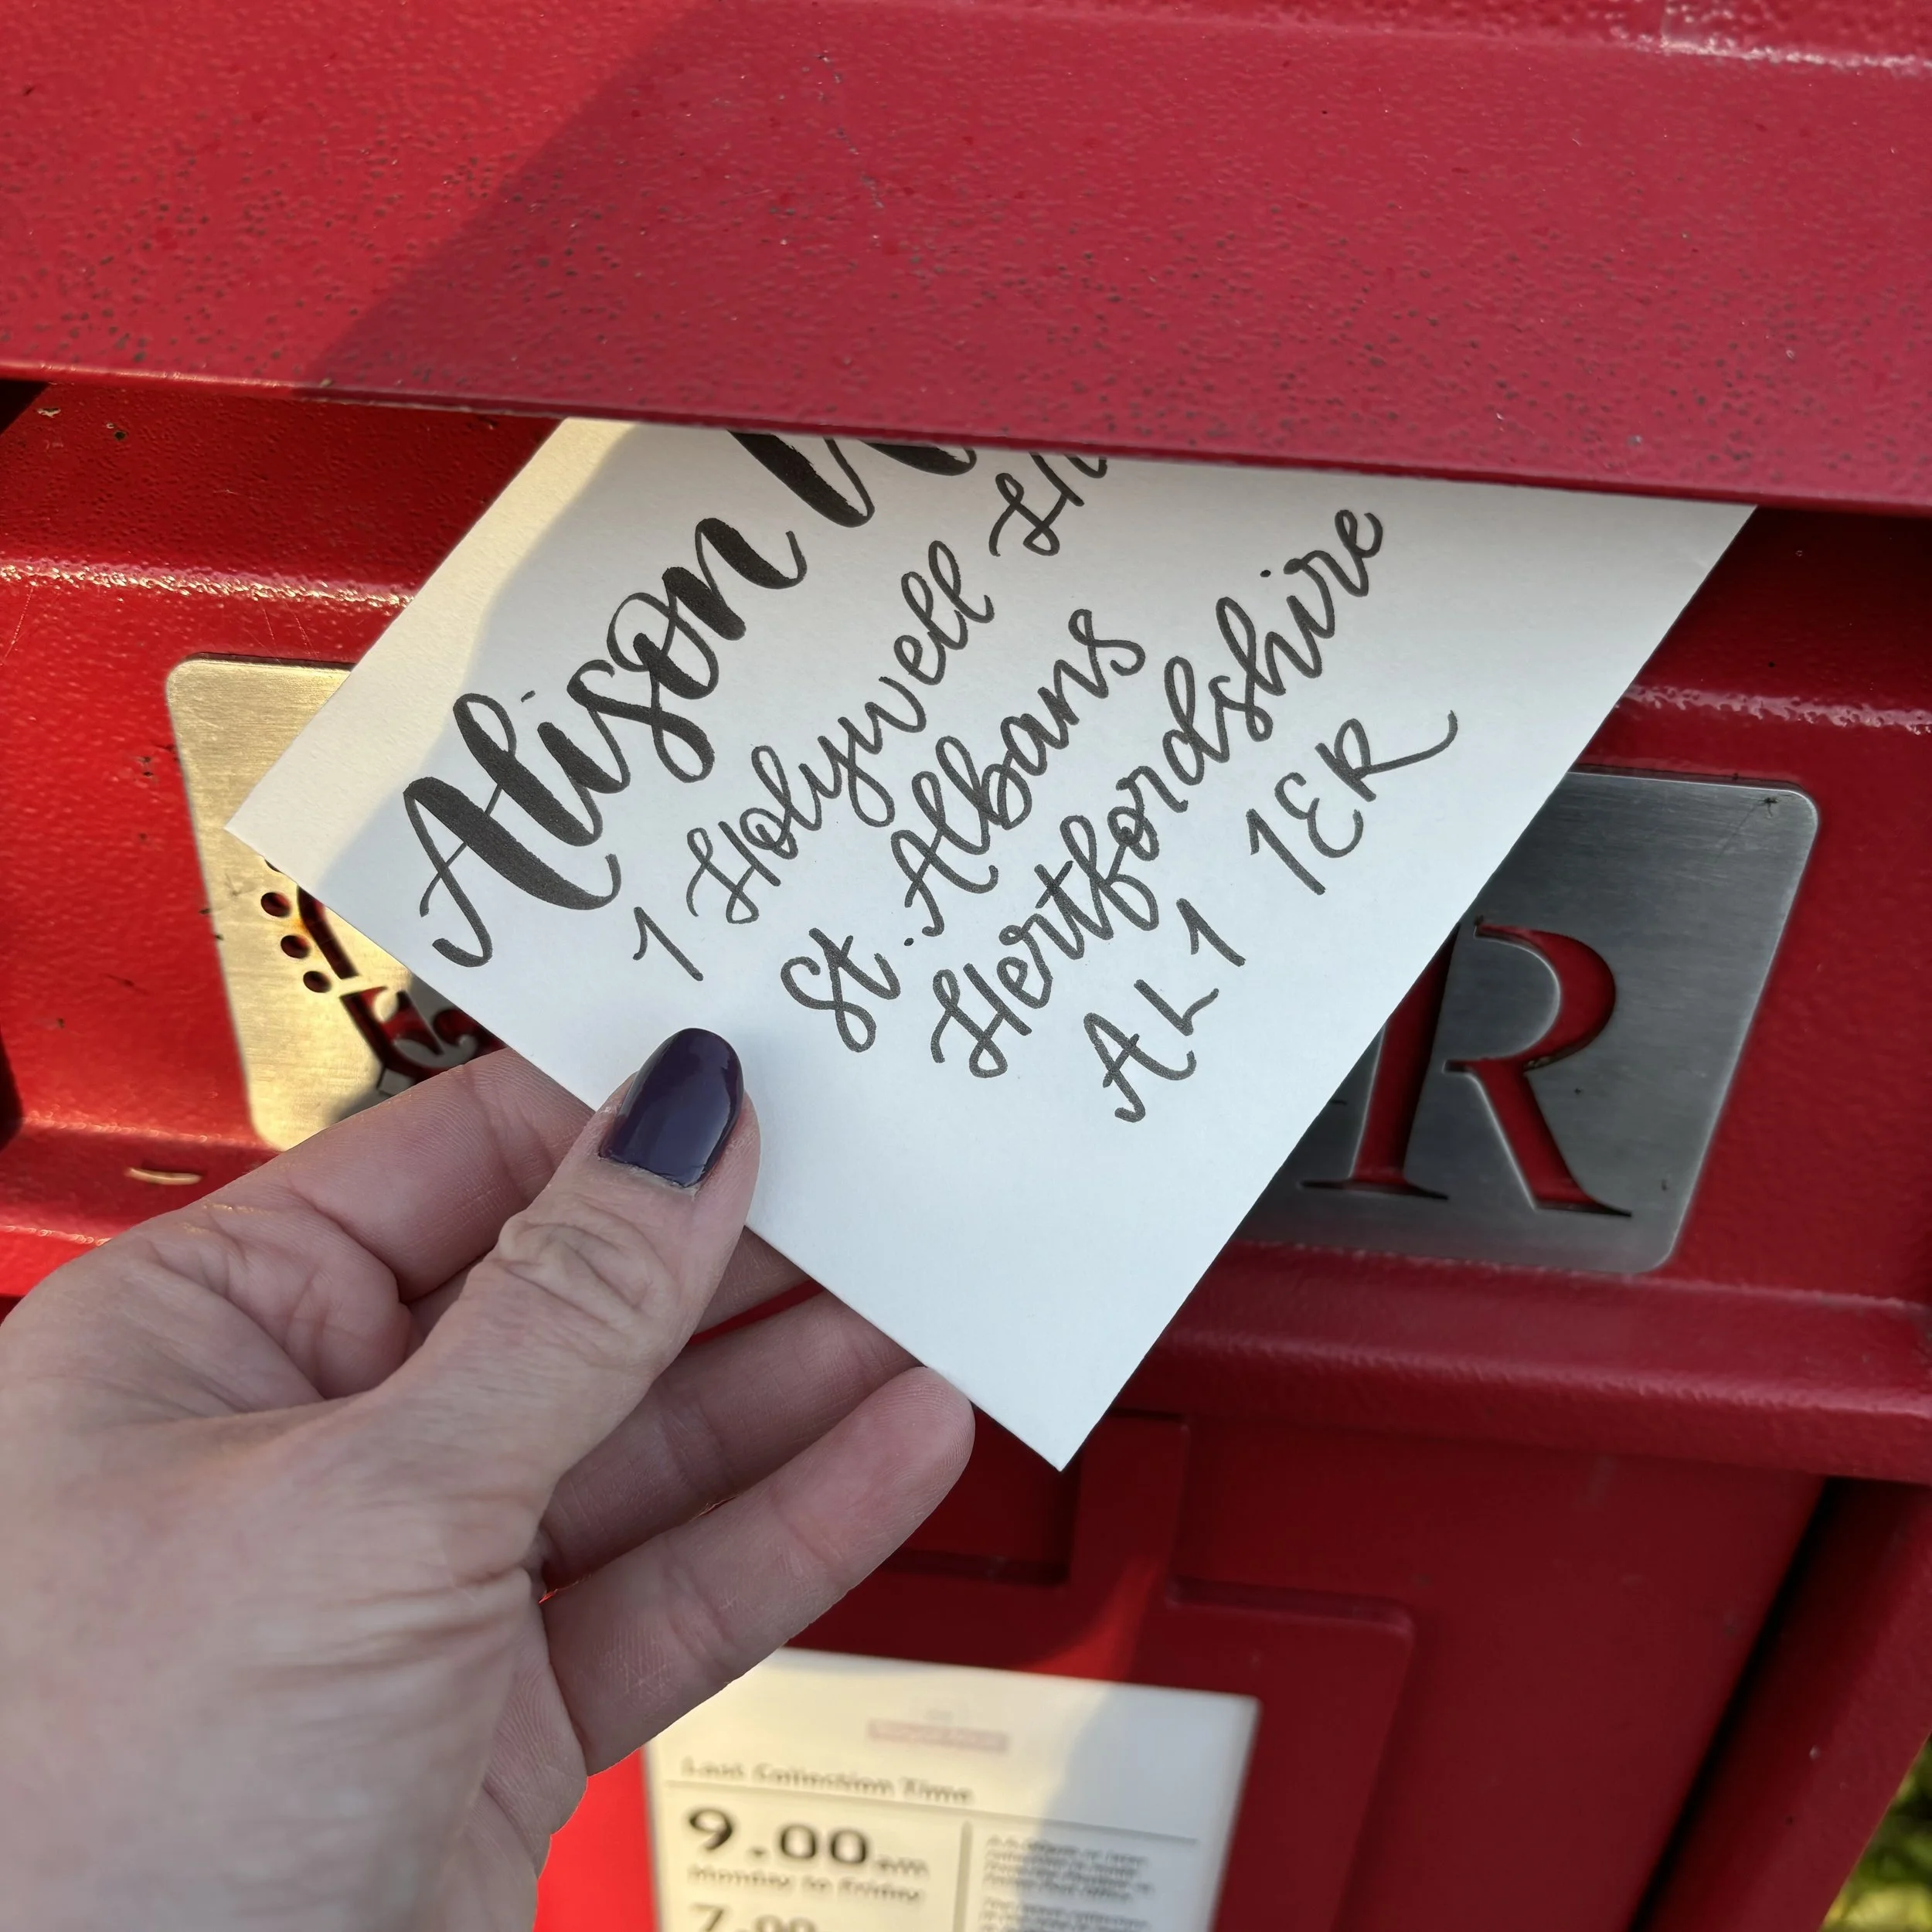 Alison
1 Holywell
St. Albans
Hertfordshire
AL1 1ER
R
Last Collection Time
9.00am
Monday to Friday
7.00